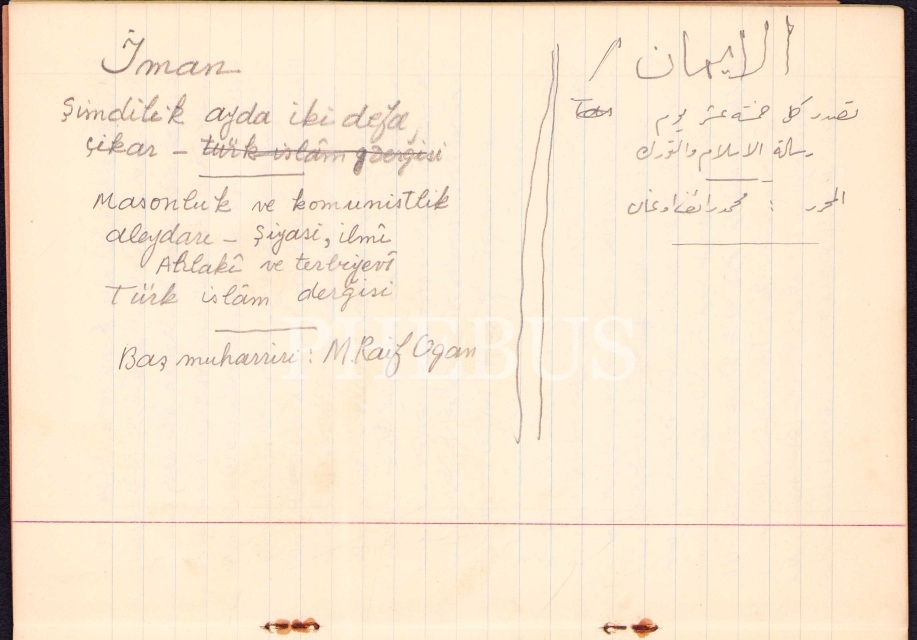 İman
Şimdilik ayda iki defa,
Çikar – türk islâm dergisi
Masonluk ve komunistlik
aleydarı – Şiyasi, ilmî
Ahlakî ve terbiyevî
Türk islâm dergisi
Baş muharriri : M Raif Ogan
الايمان /
تصدر كل خمسة عشر يوم
رسالة الاسلام والتورك
المحرر : محمد رائف اوغان
PHEBUS